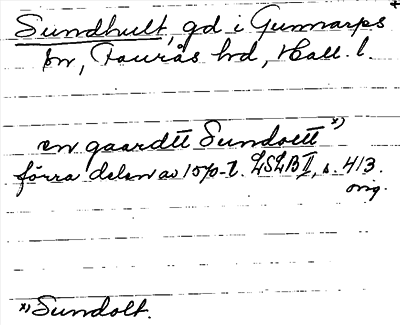 Sundhult, gd i Gunnarps
sn, Faurås hd, Hall. l.
en gaardtt Sundoltt x)
förra delen av 1570-t. LSLB II, s. 413.
orig.
x) Sundolt.